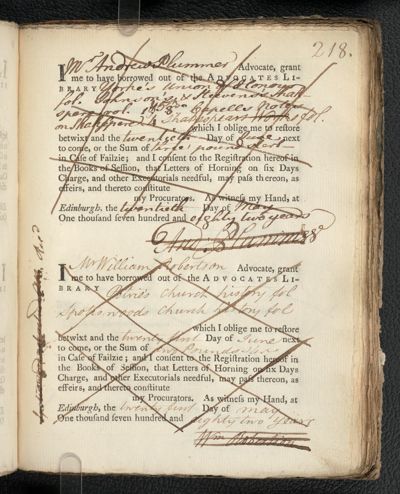 218.
I Mr Andrew Plummer Advocate, grant
me to have borrowed out of the ADVOCATES LI-
BRARY Yorke's Union of Honour
fol. Johnson & Steevens's Shak
on Shakespear Shakespears Works fol.
which I oblige me to restore
betwixt and the twentieth Day of June next
to come, or the Sum of pound
in Case of Failzie; and I consent to the Registration hereof in
the Books of Session, that Letters of Horning on six Days
Charge, and other Executorials needful, may pass thereon, as
effeirs, and thereto constitute
my Procurators. As witness my Hand, at
Edinburgh, the twentieth Day of May
One thousand seven hundred and eighty two years
And: Plummer
I Mr William Robertson Advocate, grant
me to have borrowed out of the ADVOCATES LI-
BRARY church history fol
Spotswoods church history fol
which I oblige me to restore
betwixt and the twenty first Day of June next
to come, or the Sum of Pounds
in Case of Failzie; and I consent to the Registration hereof in
the Books of Session, that Letters of Horning on six Days
Charge, and other Executorials needful, may pass thereon, as
effeirs, and thereto constitute
my Procurators. As witness my Hand, at
Edinburgh, the twenty first Day of may
One thousand seven hundred and eighty two years
Wm Robertson